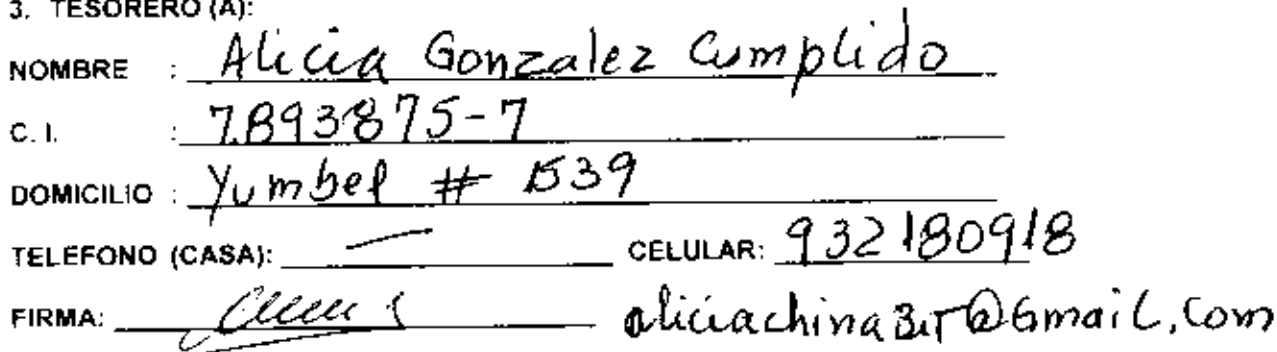 3. TESORERO (A):
NOMBRE : Alicia Gonzalez Cumplido
C. I. : 7.893875-7
DOMICILIO : Yumbel # 1539
TELEFONO (CASA): — CELULAR: 932180918
FIRMA: